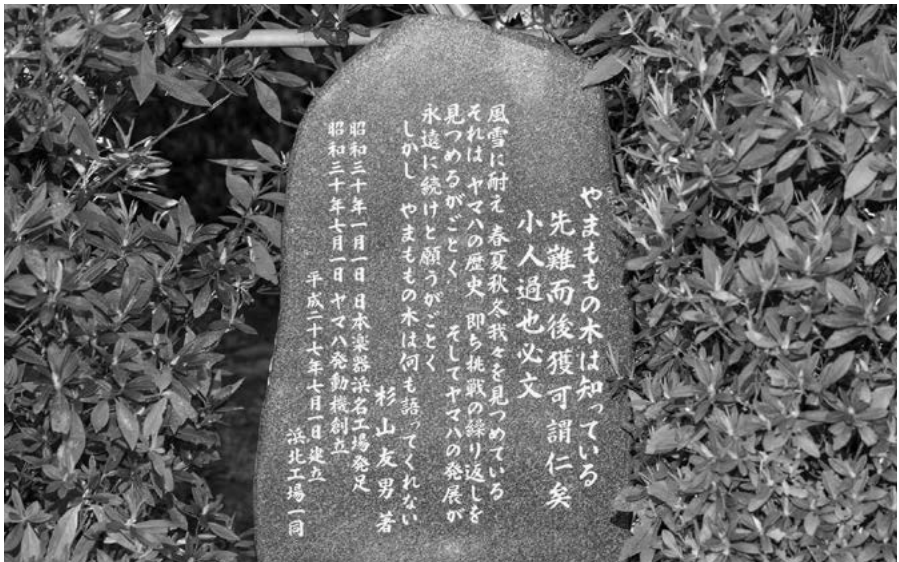 やまももの木は知っている
先難而後獲可謂仁矣
小人過也必文
風雪に耐え 春夏秋冬我々を見つめている
それは ヤマハの歴史 即ち挑戦の繰り返しを
見つめるがごとく、 そしてヤマハの発展が
永遠に続けと願うがごとく
しかし やまももの木は何も語ってくれない
杉山友男 著
昭和三十年一月一日 日本楽器浜名工場発足
昭和三十年七月一日 ヤマハ発動機創立
平成二十七年七月一日建立
浜北工場一同